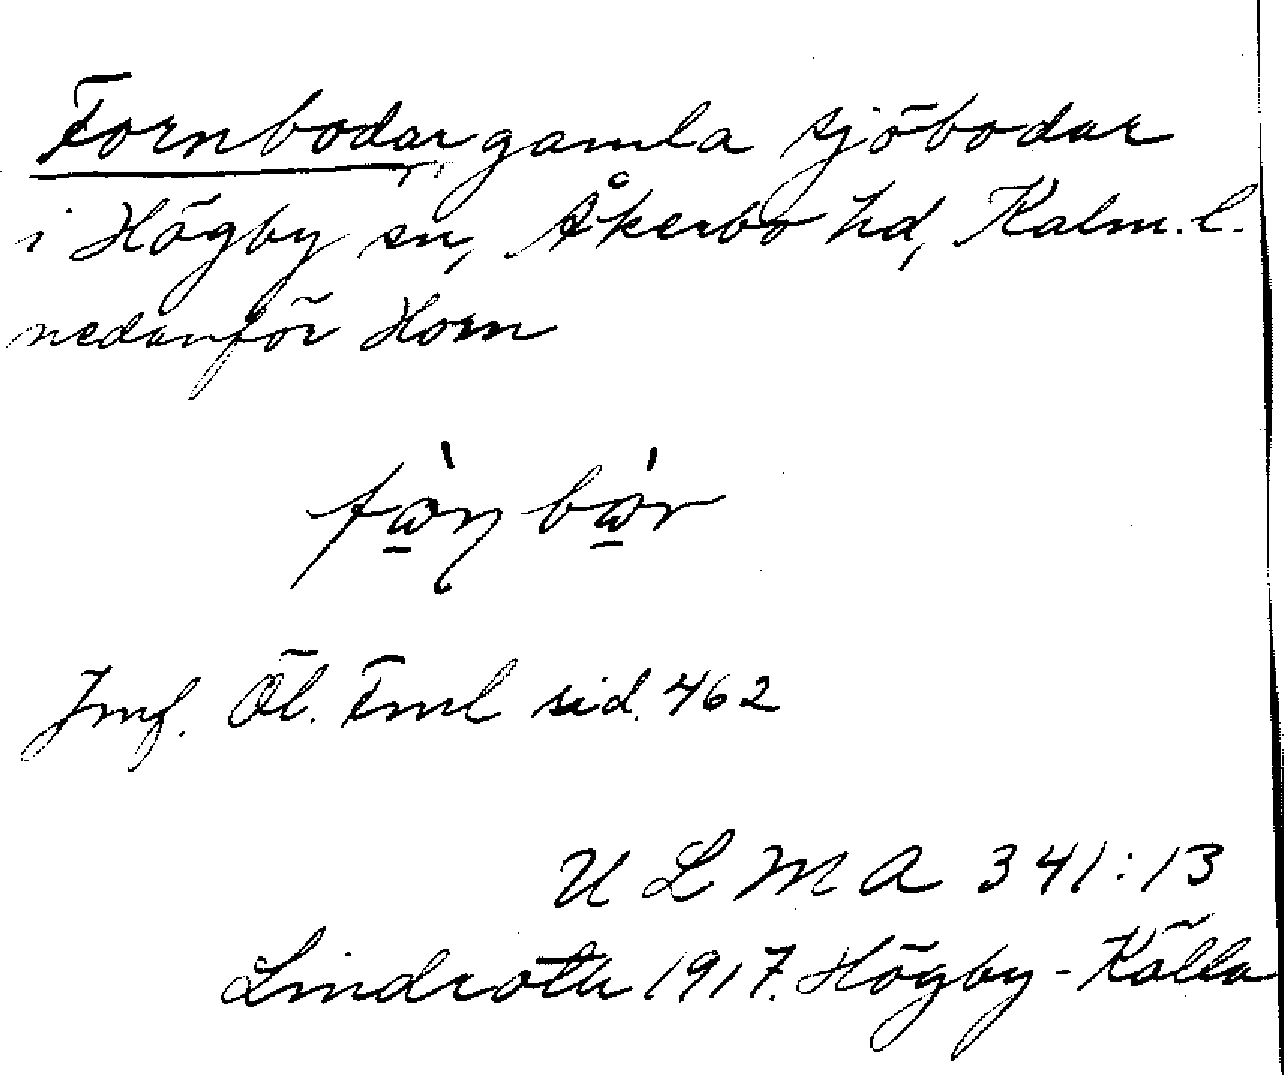 Fornbodar, gamla sjöbodar
i Högby sn, Åkerbo hd, Kalm. l.
nedanför Horn
Jmf. Öl. Fml sid. 462
U L M A 341:13
Lindroth 1917. Högby - Källa